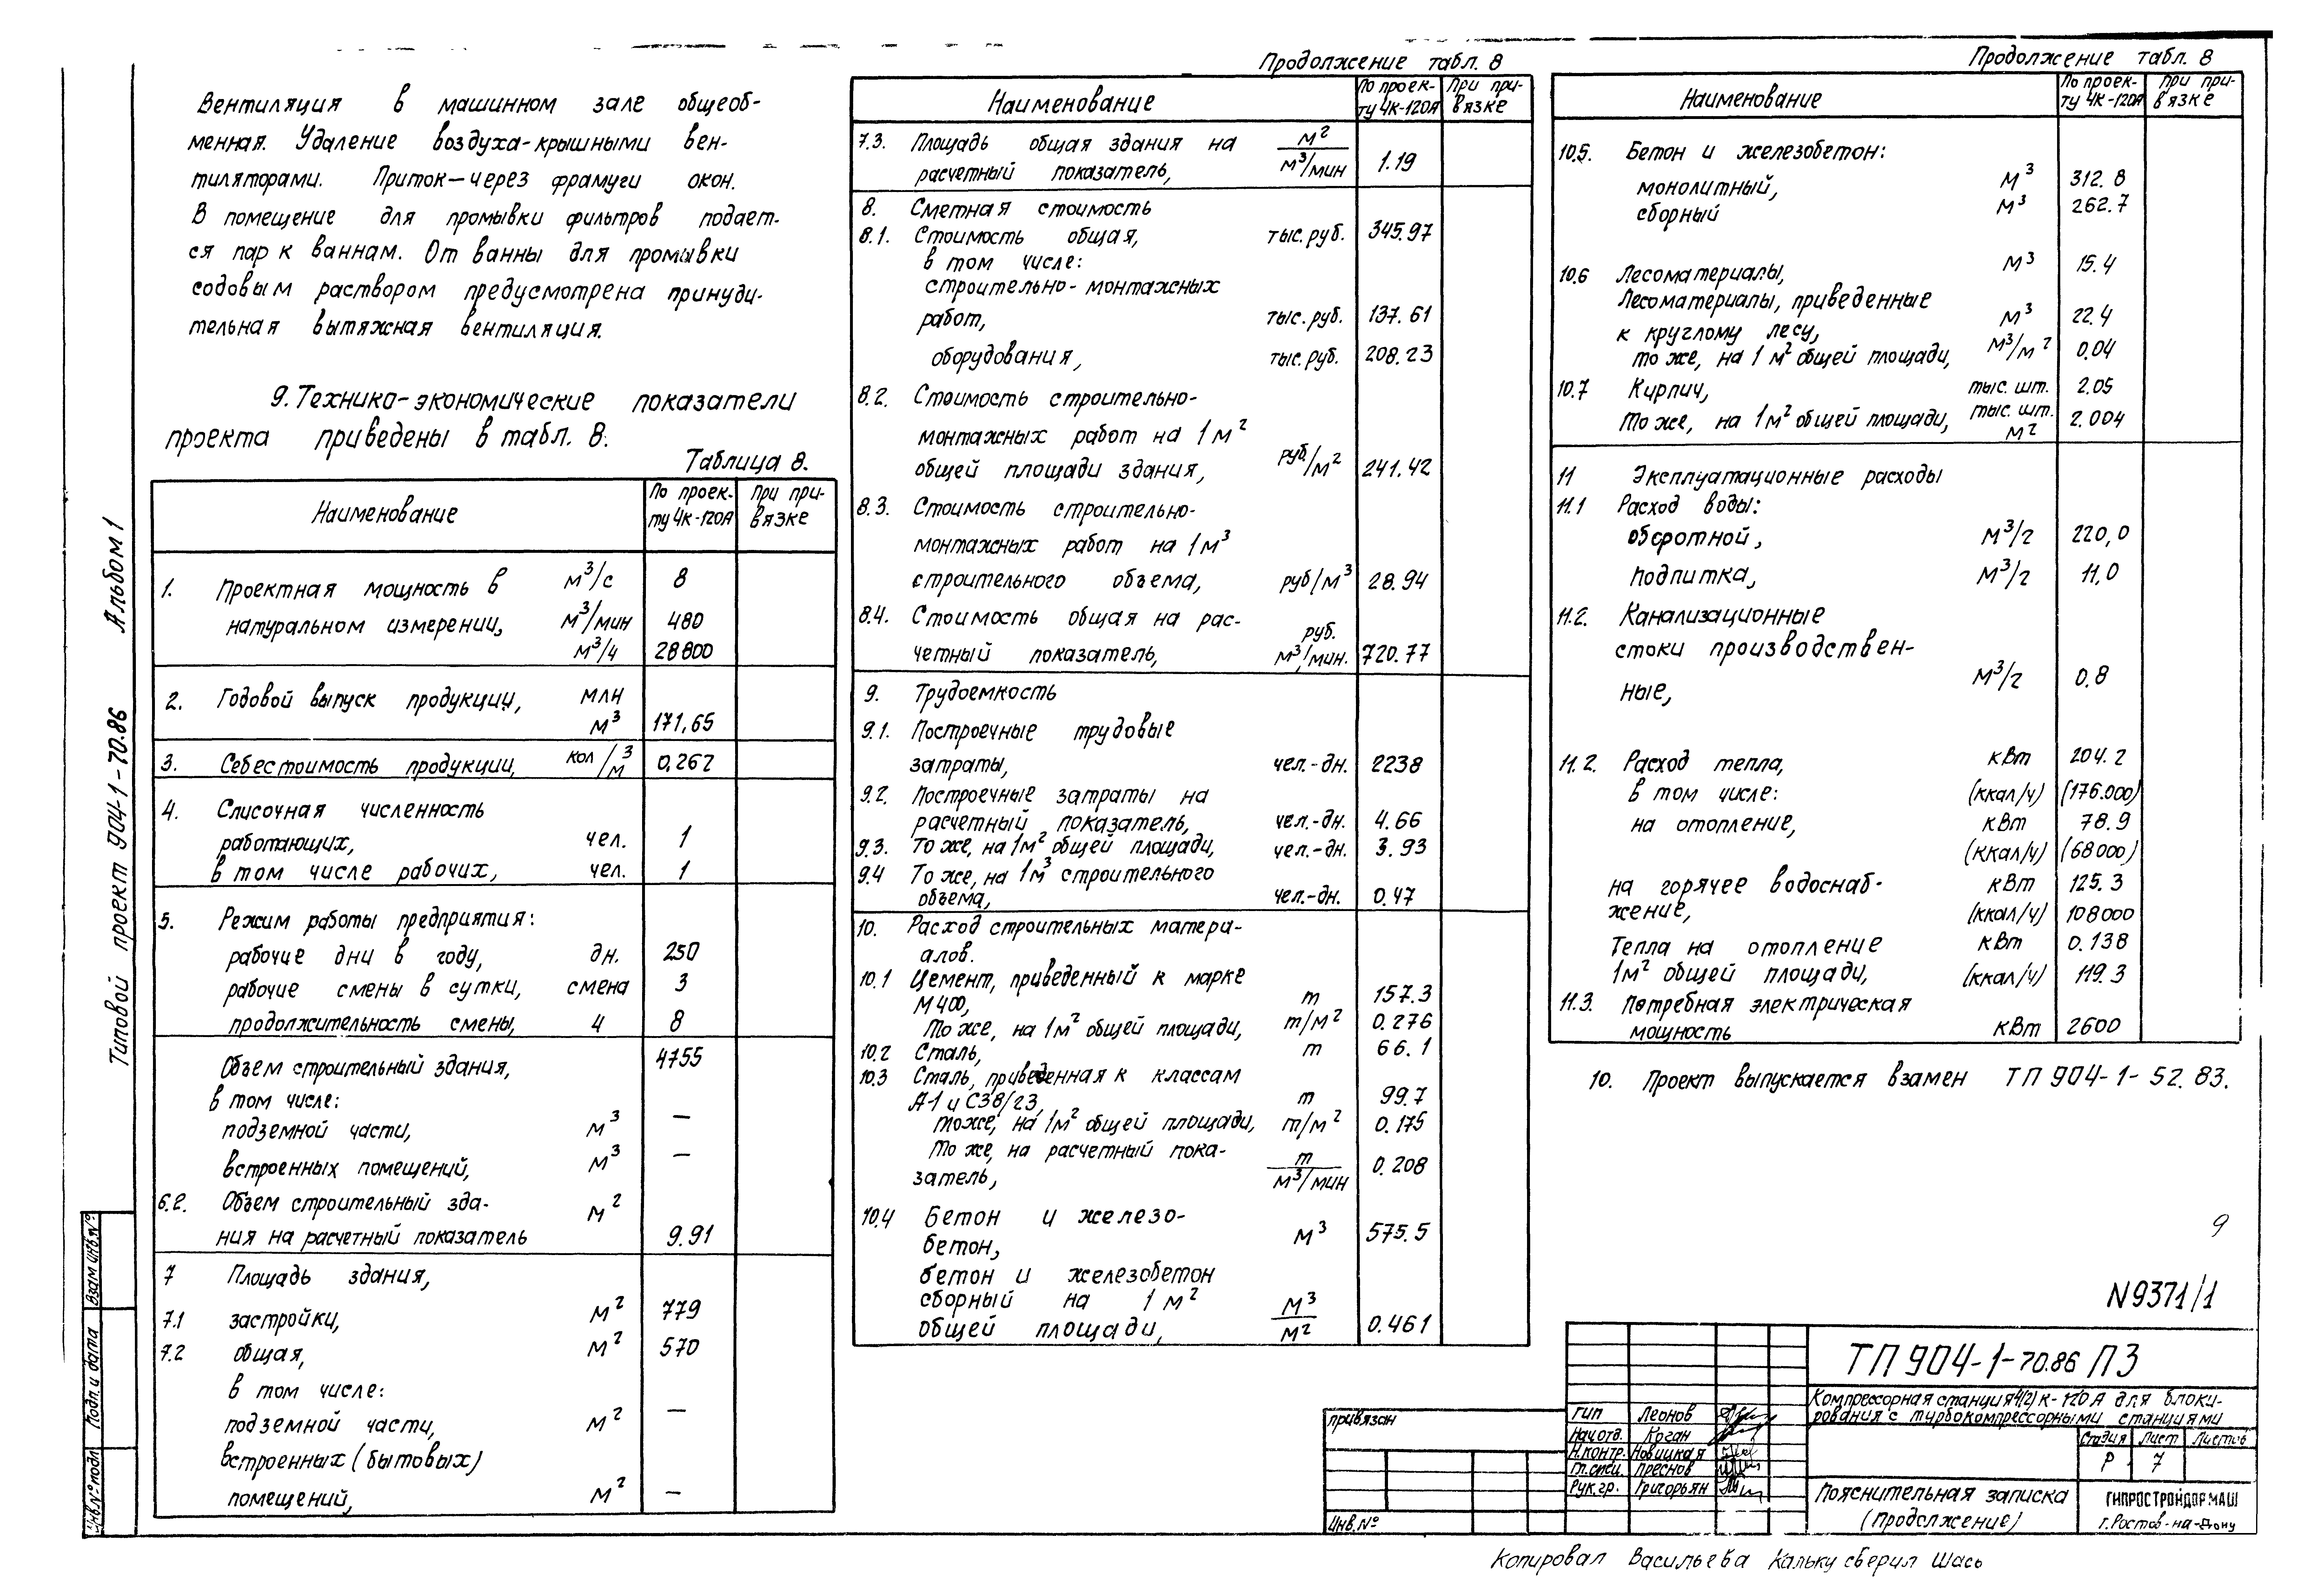 Вентиляция в машинном зале общеоб-
менная. Удаление воздуха-крышными вен-
тиляторами. Приток—через фрамуги окон.
В помещение для промывки фильтров подает-
ся пар к ваннам. От ванны для промывки
содовым раствором предусмотрена принуди-
тельная вытяжная вентиляция.
9. Технико-экономические показатели
проекта приведены в табл. 8.
Таблица 8.
Наименование По проек-ту 4К-120А При при-вязке
1. Проектная мощность в м³/с 8
натуральном измерении, м³/мин 480
м³/ч 28800
2. Годовой выпуск продукции, млн
м³ 171,65
3. Себестоимость продукции, кол/м³ 0,267
4. Списочная численность
работающих, чел. 1
в том числе рабочих, чел. 1
5. Режим работы предприятия:
рабочие дни в году, дн. 250
рабочие смены в сутки, смена 3
продолжительность смены, ч 8
Объем строительный здания, 4755
в том числе:
подземной части, м³ —
встроенных помещений, м³ —
6.2. Объем строительный зда- м²
ния на расчетный показатель 9.91
7 Площадь здания,
7.1 застройки, м² 779
7.2 общая, м² 570
в том числе:
подземной части, м² —
встроенных (бытовых)
помещений, м² —
Продолжение табл. 8
Наименование По проек-ту 4К-120А При при-вязке
7.3. Площадь общая здания на м²
расчетный показатель, м³/мин 1.19
8. Сметная стоимость
8.1. Стоимость общая, тыс. руб. 345.97
в том числе:
строительно-монтажных
работ, тыс. руб. 137.61
оборудования, тыс. руб. 208.23
8.2. Стоимость строительно-
монтажных работ на 1м²
общей площади здания, руб/м² 241.42
8.3. Стоимость строительно-
монтажных работ на 1м³
строительного объема, руб/м³ 28.94
8.4. Стоимость общая на рас- руб.
четный показатель, м³/мин. 720.77
9. Трудоемкость
9.1. Построечные трудовые
затраты, чел.-дн. 2238
9.2. Построечные затраты на
расчетный показатель, чел.-дн. 4.66
9.3. То же, на 1м² общей площади, чел.-дн. 3.93
9.4 То же, на 1м³ строительного
объема, чел.-дн. 0.47
10. Расход строительных матери-
алов.
10.1 Цемент, приведенный к марке
М 400, т 157.3
То же, на 1м² общей площади, т/м² 0.276
10.2 Сталь, т 66.1
10.3 Сталь, приведенная к классам
А-1 и С38/23, т 99.7
тоже, на 1м² общей площади, т/м² 0.175
То же, на расчетный пока- т
затель, м³/мин 0.208
10.4 Бетон и железо-
бетон, м³ 575.5
бетон и железобетон
сборный на 1м² м³
общей площади, м² 0.461
Продолжение табл. 8
Наименование По проек-ту 4К-120А При при-вязке
10.5. Бетон и железобетон:
монолитный, м³ 312.8
сборный м³ 262.7
10.6 Лесоматериалы, м³ 15.4
Лесоматериалы, приведенные
к круглому лесу, м³ 22.4
то же, на 1м² общей площади, м³/м² 0.04
10.7 Кирпич, тыс. шт. 2.05
То же, на 1м² общей площади, тыс. шт. м² 2.004
11 Эксплуатационные расходы
11.1 Расход воды:
оборотной, м³/г 220,0
подпитка, м³/г 11,0
11.2. Канализационные
стоки производствен-
ные, м³/г 0.8
11.2. Расход тепла, кВт 204.2
в том числе: (ккал/ч) (176.000)
на отопление, кВт 78.9
(ккал/ч) (68000)
на горячее водоснаб- кВт 125.3
жение, (ккал/ч) 108000
Тепла на отопление кВт 0.138
1м² общей площади, (ккал/ч) 119.3
11.3. Потребная электрическая
мощность кВт 2600
10. Проект выпускается взамен ТП 904-1-52.83.
9
N9371/1
ТП 904-1-70.86 ПЗ
Компрессорная станция 4(2)К-120А для блоки-
рования с турбокомпрессорными станциями
Стадия Лист Листов
Р 7
Пояснительная записка
(Продолжение)
ГИПРОСТРОЙДОРМАШ
г. Ростов-на-Дону
ГИП Леонов
Нач.отд. Коган
Н.контр. Новицкая
Гл.спец. Преснов
Рук.гр. Григорьян
привязан
Инв.№
Копировал Васильева Кальку сверил Шась
Типовой проект 904-1-70.86 Альбом 1
Взам инв.№
Подп. и дата
Инв.№ подл